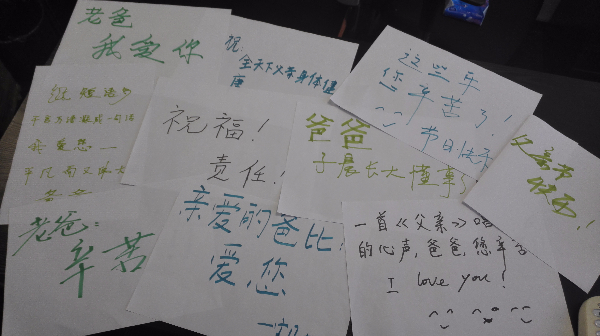 老爸
我爱你
祝:
全天下父亲身体健
康
这些年
您辛苦了!
节日快乐
祝福!
责任!
爸爸
子晨长大懂事了
父亲节
快乐!
千言万语凝成一句话
我爱您
老爸:
辛苦
亲爱的爸比!
爱您
一首《父亲》唱
的心声,爸爸,您辛苦
I love you!